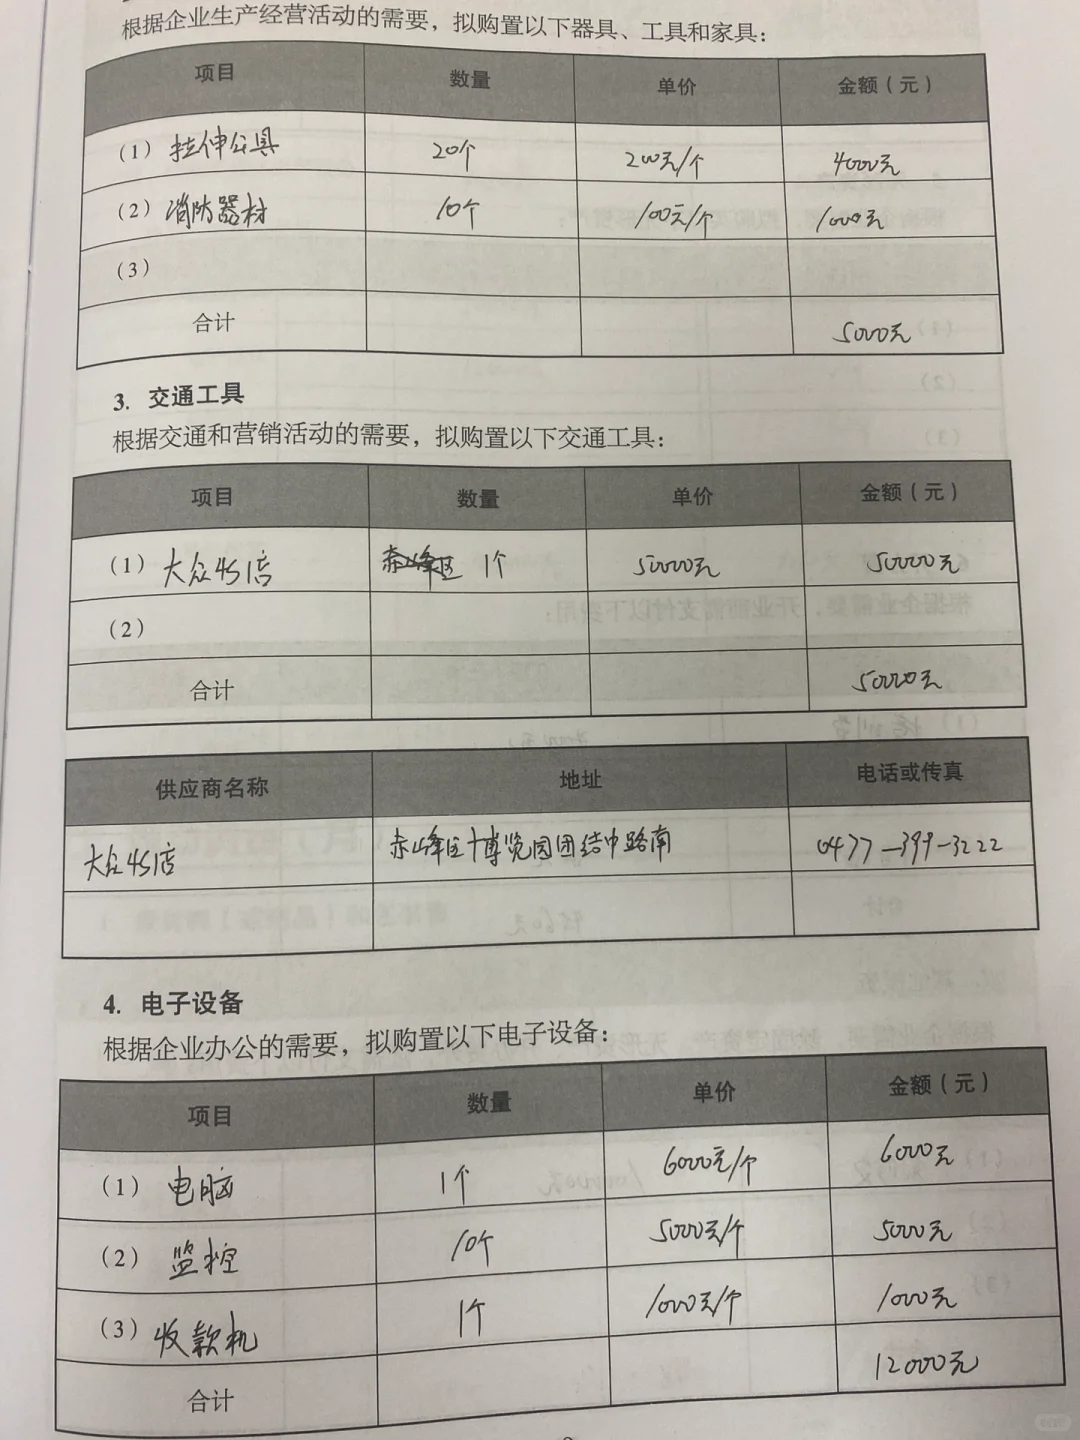 根据企业生产经营活动的需要，拟购置以下器具、工具和家具：
项目 数量 单价 金额（元）
（1）拉伸公具 20个 200元/个 4000元
（2）消防器材 10个 100元/个 1000元
（3）
合计 5000元
3. 交通工具
根据交通和营销活动的需要，拟购置以下交通工具：
项目 数量 单价 金额（元）
（1）大众4S店 1个 50000元 50000元
（2）
合计 50000元
供应商名称 地址 电话或传真
大众4S店 赤峰区博览园团结中路南 0477-399-3222
4. 电子设备
根据企业办公的需要，拟购置以下电子设备：
项目 数量 单价 金额（元）
（1）电脑 1个 6000元/个 6000元
（2）监控 10个 5000元/个 5000元
（3）收款机 1个 1000元/个 1000元
合计 12000元